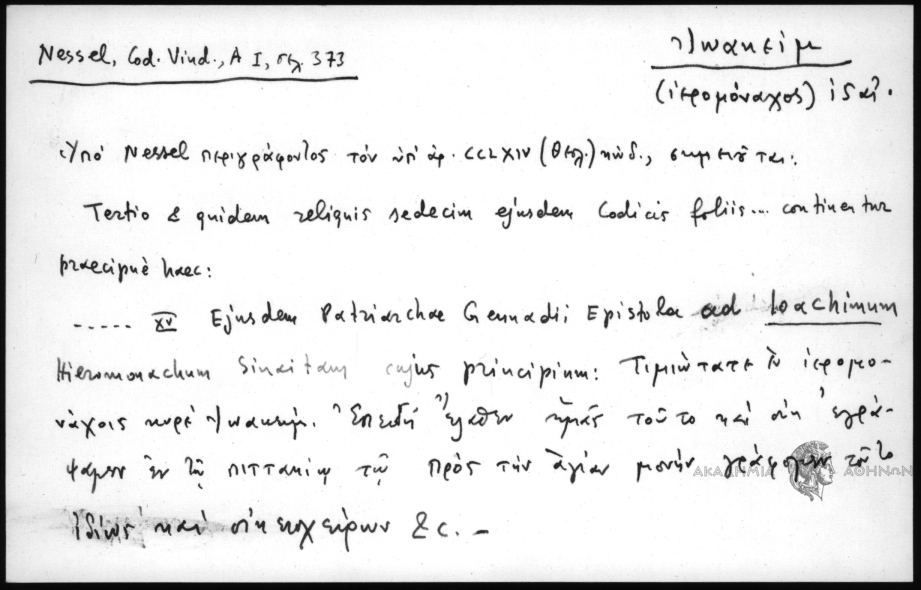 Nessel, Cod. Vind., A I, σελ. 373
Ἰωακεὶμ
(ἱερομόναχος)
Ὑπὸ Nessel περιγράφοντος τὸν ὑπ' ἀρ. CCLXIV (Θεολ.) κώδ., σημειοῦται:
Tertio & quidem reliquis sedecim ejusdem Codicis foliis... continentur
praecipuè haec:
..... XV Ejusdem Patriarchae Gennadii Epistola ad Ioachimum
Hieromonachum Sinaitam cujus principium: Τιμιώτατε ἐν ἱερομο-
νάχοις κυρὲ Ἰωακείμ. Ἐπειδὴ ἔλαθεν ἡμᾶς τοῦτο καὶ οὐκ ἐγρά-
ψαμεν ἐν τῷ πιττακίῳ τῷ πρὸς τὴν ἁγίαν μονὴν γράφομεν τοῦτο
ἰδίως καὶ &c. –
ΑΚΑΔΗΜΙΑ ΑΘΗΝΩΝ